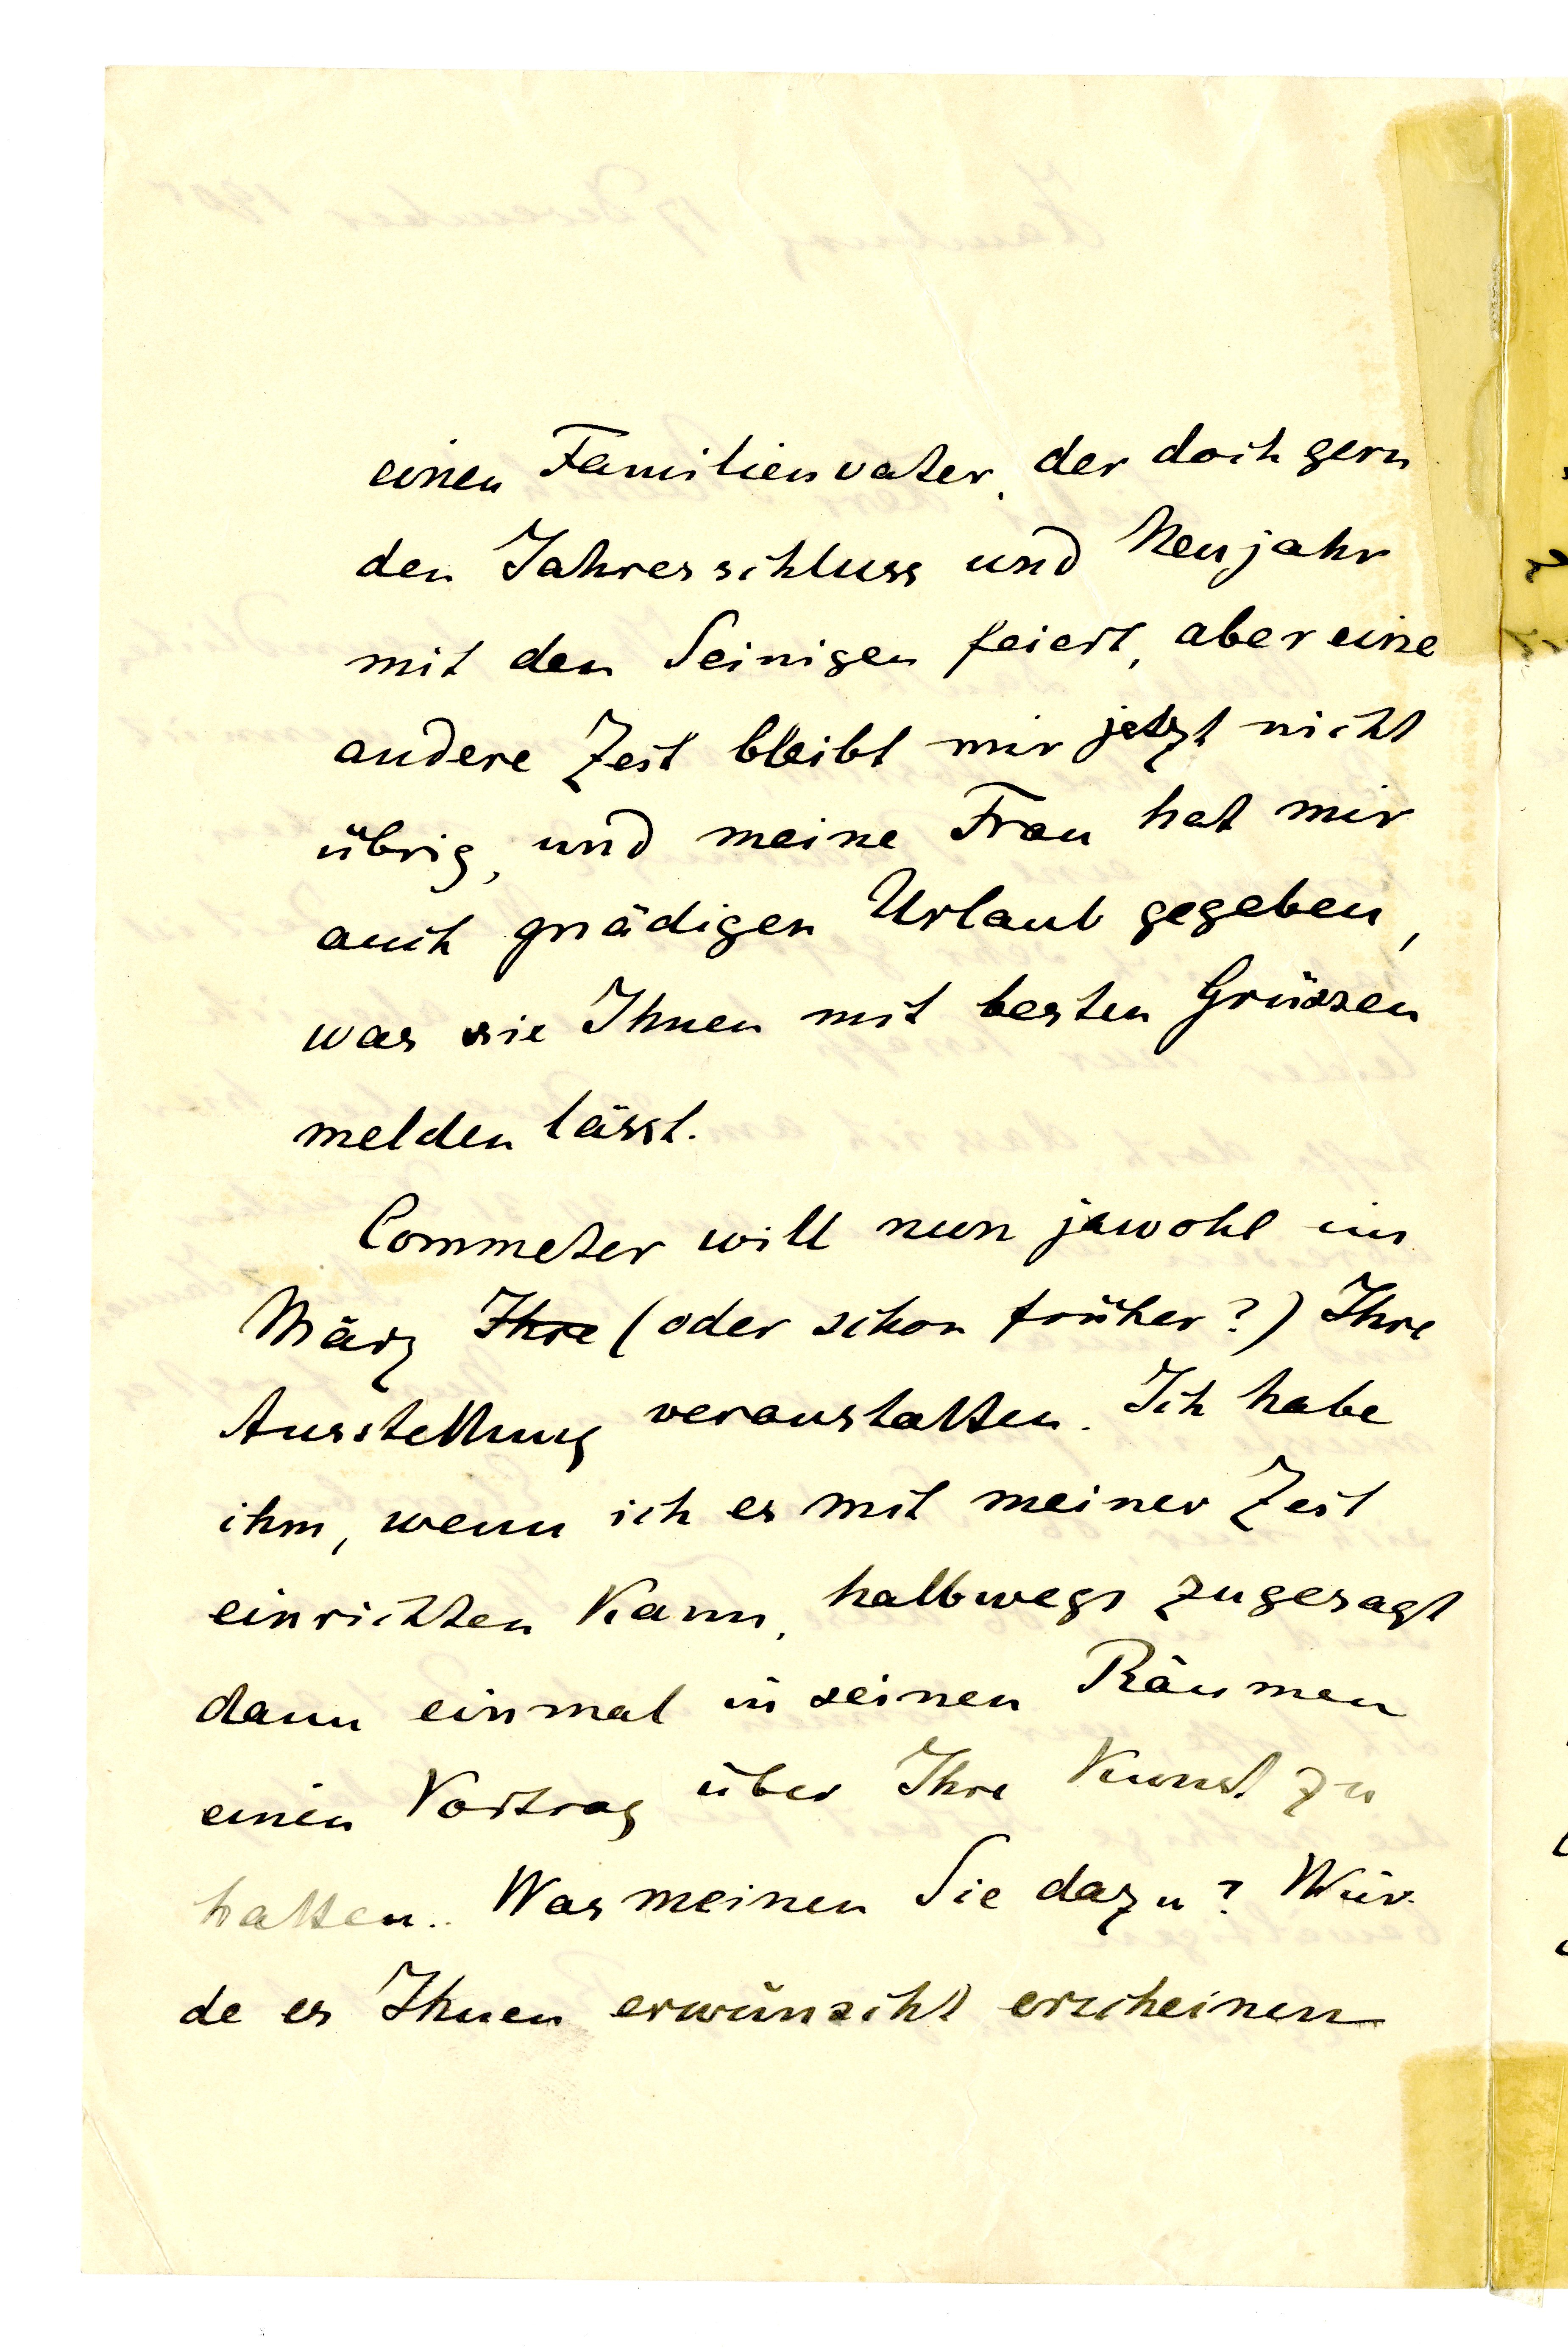 einen Familienvater, der doch gern
den Jahresschluss und Neujahr
mit den Seinigen feiert, aber eine
andere Zeit bleibt mir jetzt nicht
übrig, und meine Frau hat mir
auch gnädigen Urlaub gegeben,
was sie Ihnen mit besten Grüssen
melden lässt.
Commeter will nun jawohl im
März Ihre (oder schon früher?) Ihre
Ausstellung veranstalten. Ich habe
ihm, wenn ich es mit meiner Zeit
einrichten kann, halbwegs zugesagt
dann einmal in seinen Räumen
einen Vortrag über Ihre Kunst zu
halten. Was meinen Sie dazu? Wür-
de es Ihnen erwünscht erscheinen